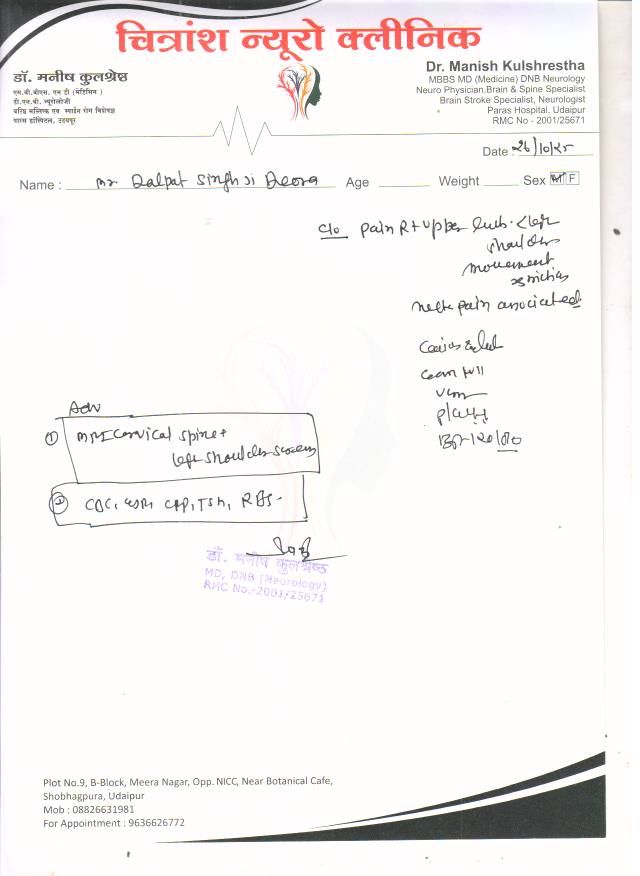 चित्रांश न्यूरो क्लीनिक
डॉ. मनीष कुलश्रेष्ठ
एम.बी.बीएस. एम डी (मेडिसिन)
डी.एन.बी. न्यूरोलॉजी
वरिष्ठ मस्तिष्क एवं स्पाईन रोग विशेषज्ञ
पारस हॉस्पिटल, उदयपुर
Dr. Manish Kulshrestha
MBBS MD (Medicine) DNB Neurology
Neuro Physician,Brain & Spine Specialist
Brain Stroke Specialist, Neurologist
Paras Hospital, Udaipur
RMC No - 2001/25671
Date : 26/10/25
Name : Mr Dalpat Singh Ji Deora Age Weight Sex M F
c/o Pain Rt upper limb. < left
shoulder
movement
neck pain associated
BP-120/80
Adv
① MRI Cervical Spine +
left shoulder screening
② CBC, ESR, CRP, TSH, RBS-
डॉ. मनीष कुलश्रेष्ठ
MD, DNB (Neurology)
RMC No.-2001/25671
Plot No.9, B-Block, Meera Nagar, Opp. NICC, Near Botanical Cafe,
Shobhagpura, Udaipur
Mob : 08826631981
For Appointment : 9636626772